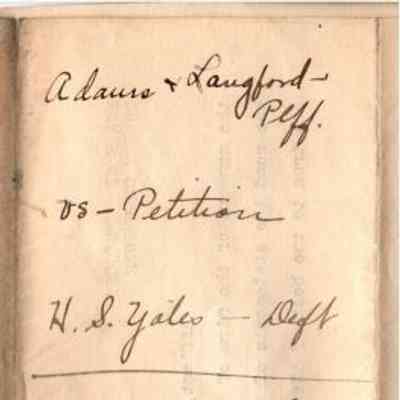 Adams & Langford -
Plff.
vs - Petition
H. S. Yates - Deft